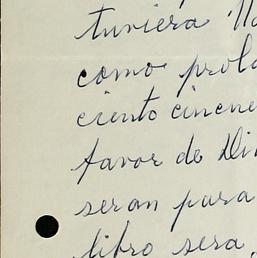 tuviera
como prolo
ciento cincue
favor de Din
seran para
libro sera